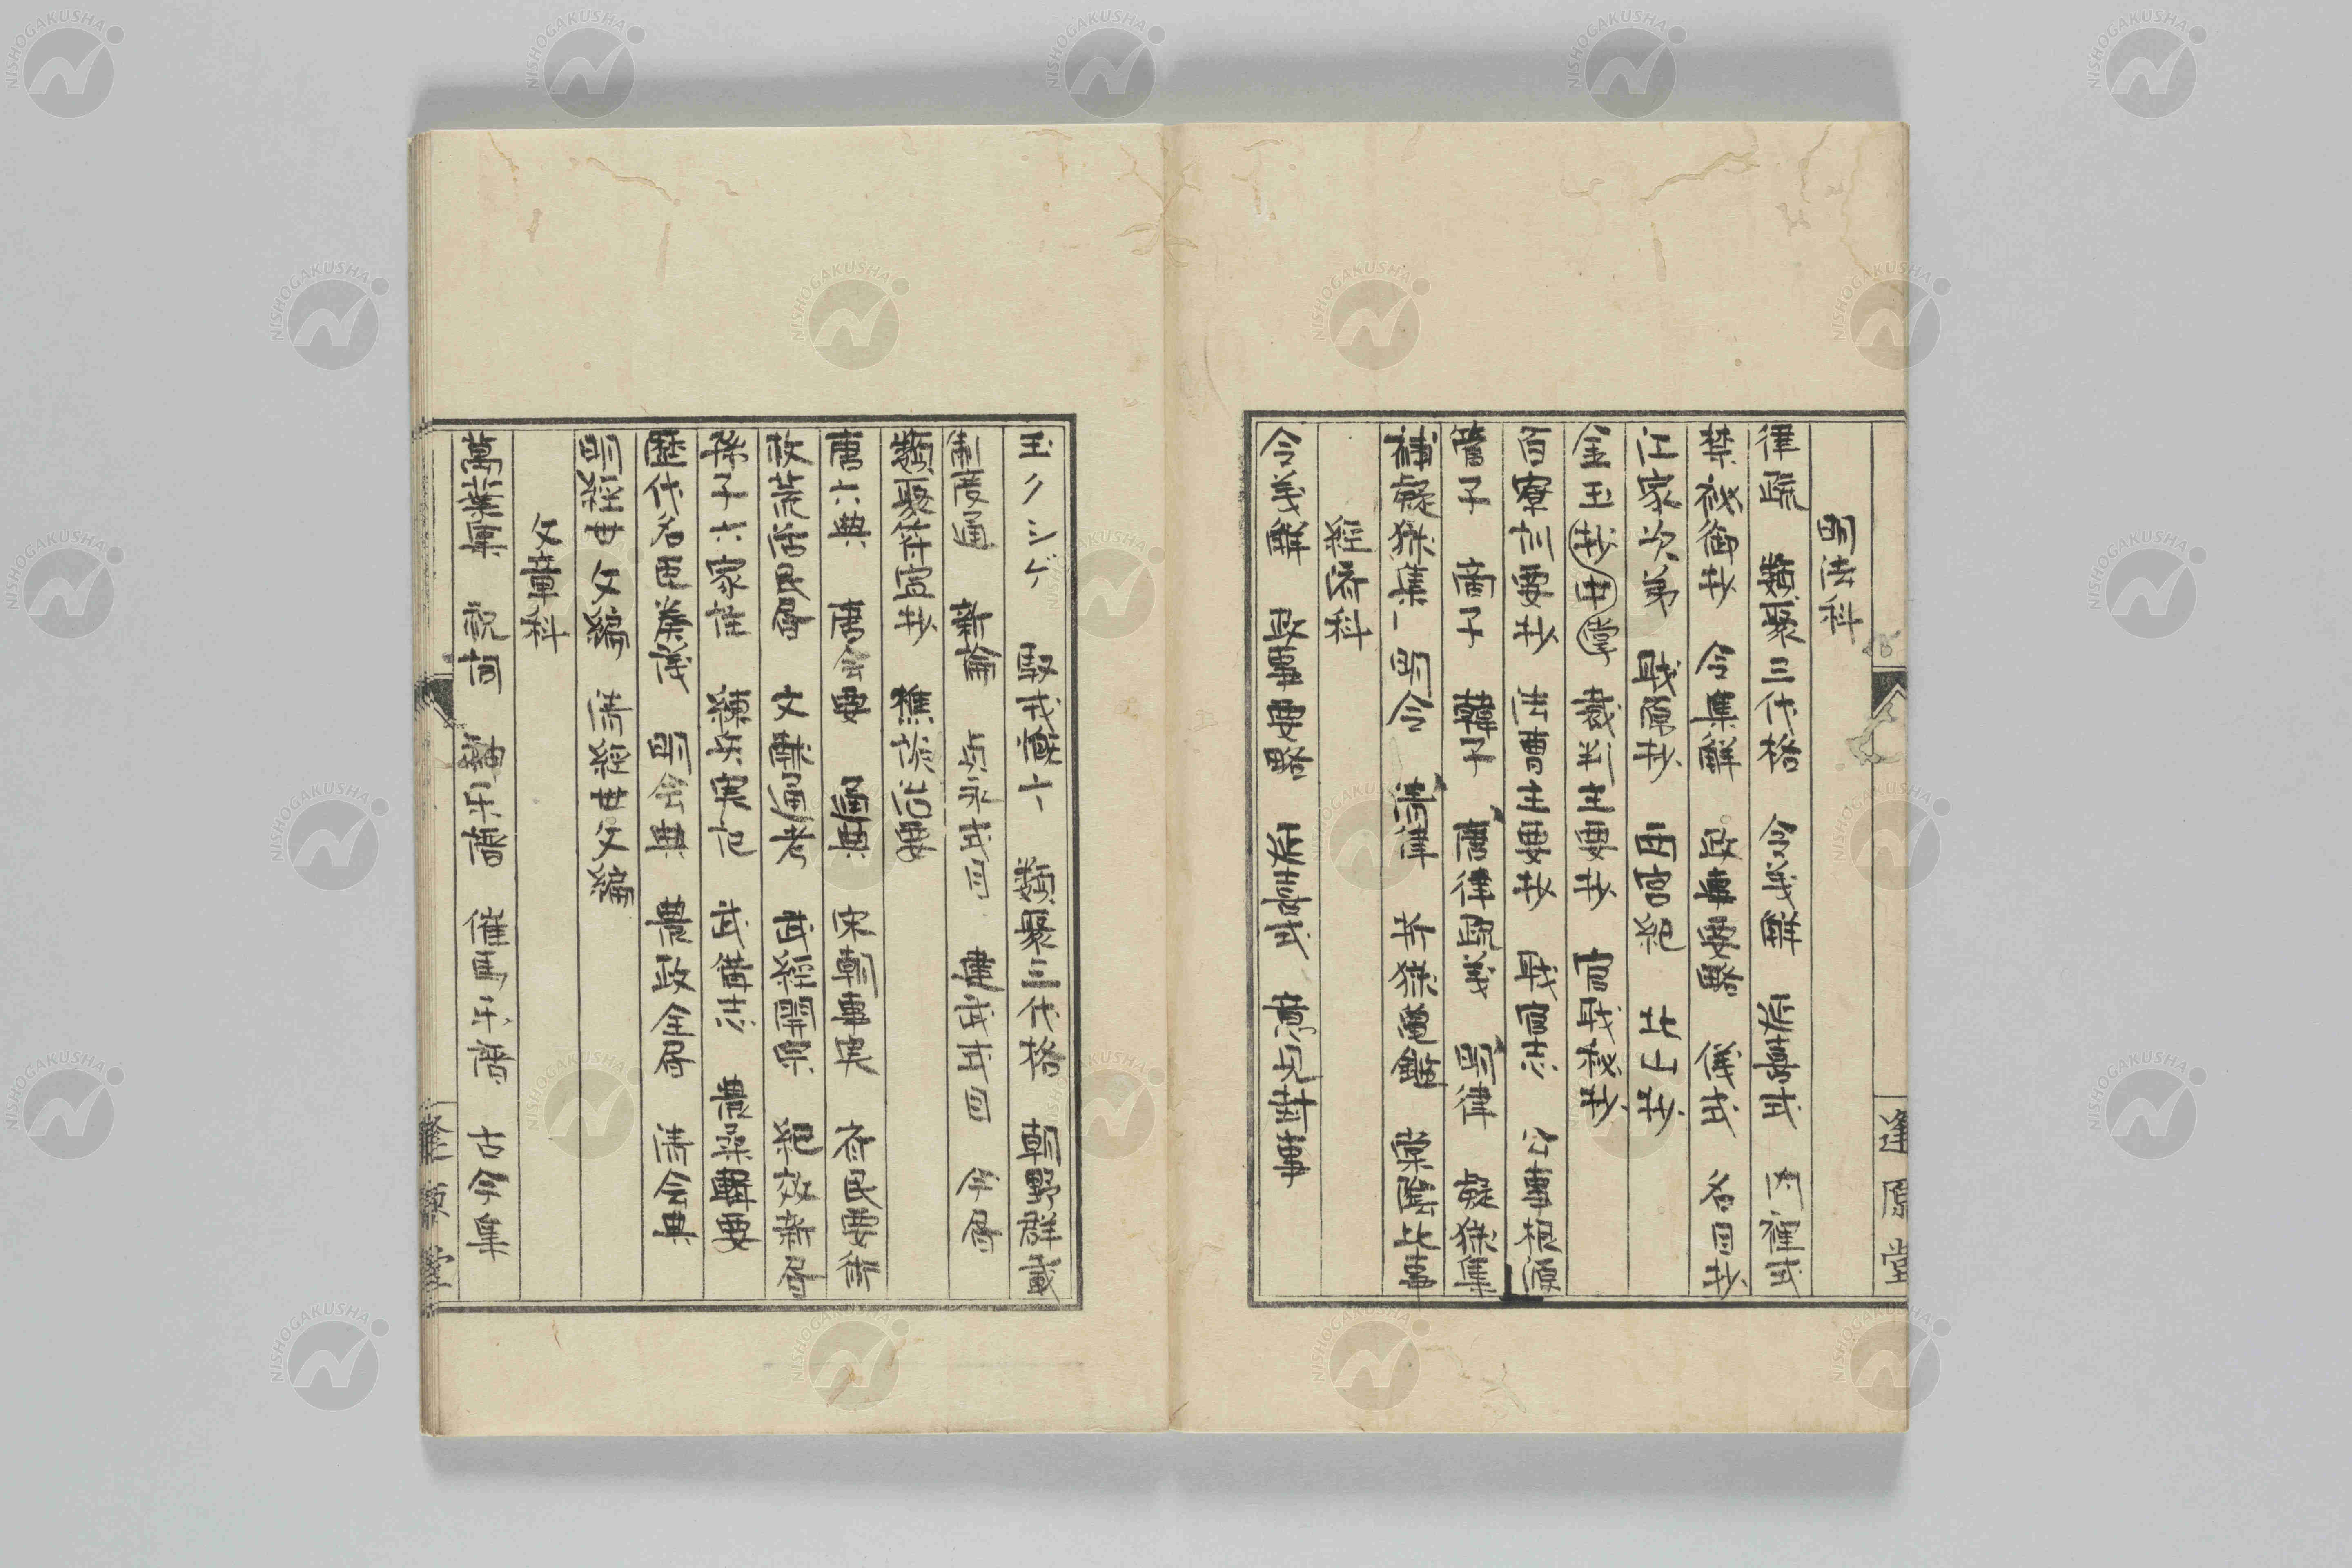 明法科
律疏 類聚三代格 令義解 延喜式 内裡式
禁秘御抄 令集解 政事要略 儀式 名目抄
江家次第 職原抄 北山抄
金玉抄中掌 裁判至要抄 官職秘抄
百寮訓要抄 法曹至要抄 職官志 公事根源
管子 商子 韓子 唐律疏義 明律 疑獄集
補疑獄集 明令 清律 折獄亀鑑 棠陰比事
經済科
令義解 政事要略 延喜式 意見封事
類聚三代格 朝野群載
制度通 新論 貞永式目 建武式目 今書
類聚符宣抄 樵談治要
唐六典 唐会要 通典 宋朝事実 斉民要術
救荒活民書 文献通考 武經開宗 紀效新書
孫子六家註 練兵実記 武備志 農桑輯要
歴代名臣奏議 明会典 農政全書 清会典
明經世文編 清經世文編
文章科
萬葉集 祝詞 神楽譜 催馬楽譜 古今集
逢原堂